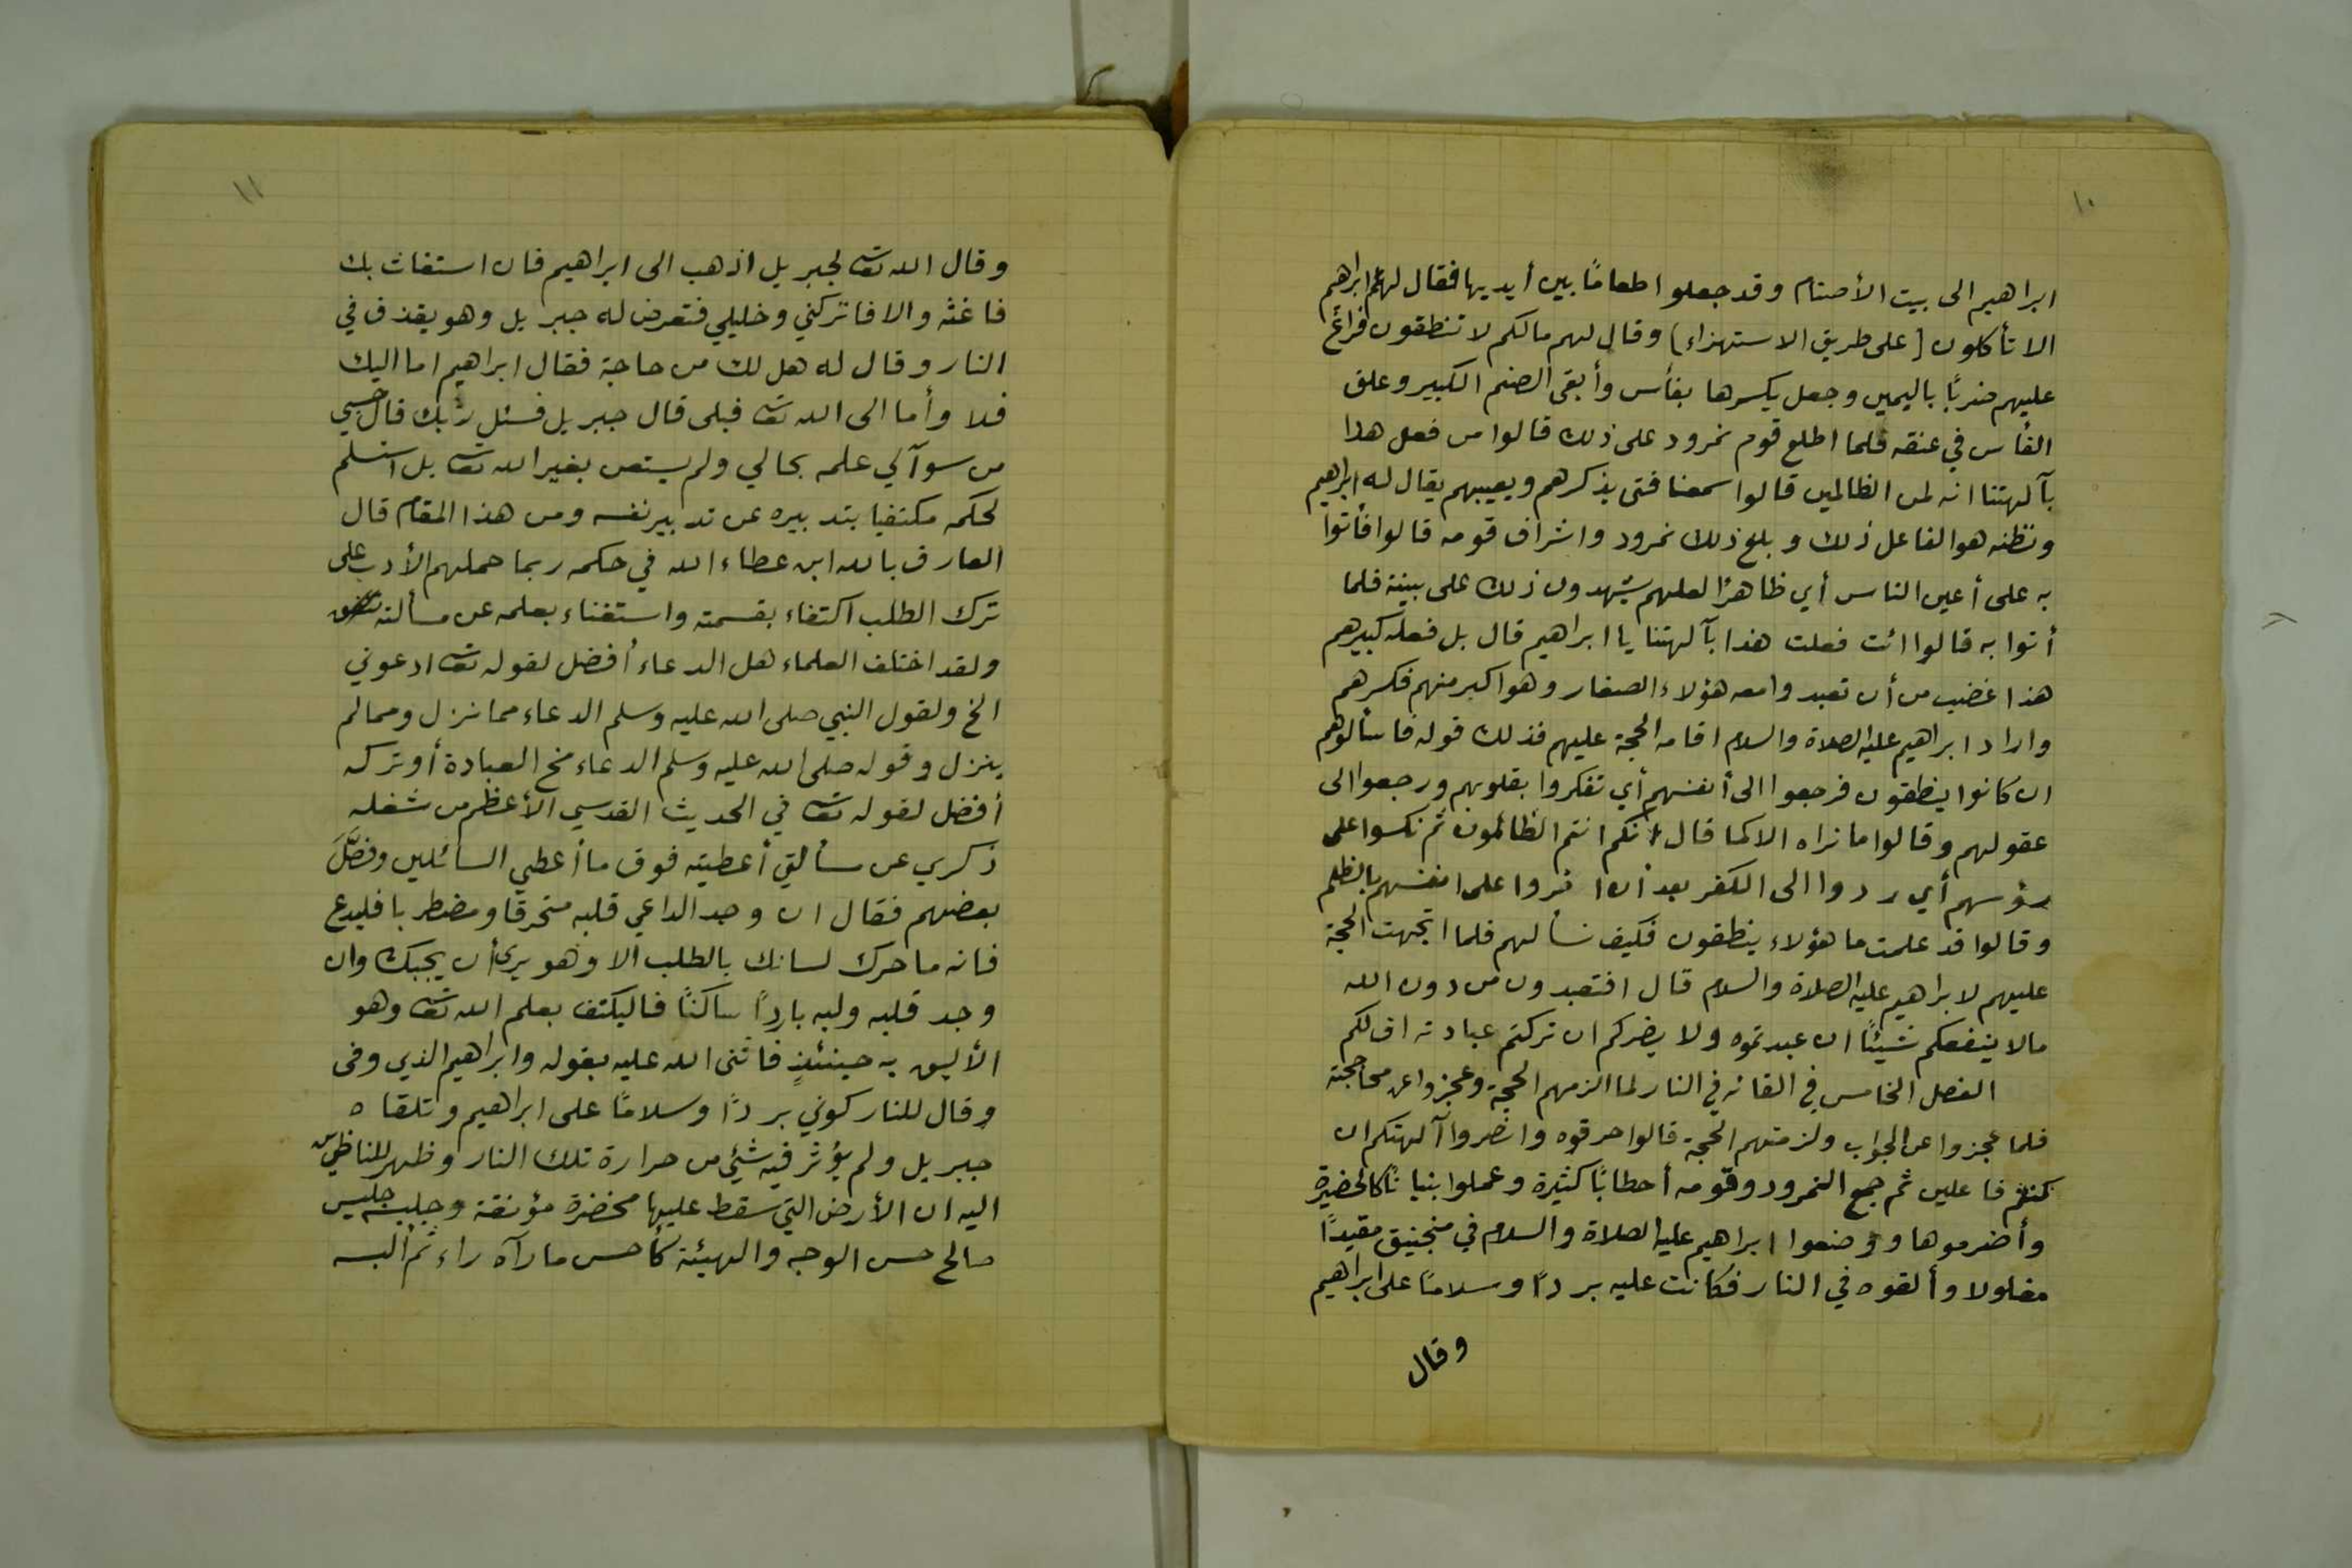 ١٠
ابراهيم الى بيت الأصنام وقد جعلوا طعامًا بين أيديها فقال لهم ابراهيم
الا تأكلون (على طريق الاستهزاء) وقال لهم مالكم لا تنطقون فراغ
عليهم ضربًا باليمين وجعل يكسرها بفأس وأبقى الصنم الكبير وعلق
الفأس في عنقه فلما اطلع قوم نمرود على ذلك قالوا من فعل هذا
بآلهتنا انه لمن الظالمين قالوا سمعنا فتى يذكرهم ويعيبهم يقال له ابراهيم
ونظنه هو الفاعل ذلك وبلغ ذلك نمرود واشراف قومه قالوا فأتوا
به على أعين الناس أي ظاهرًا لعلهم يشهدون ذلك على بينة فلما
أتوا به قالوا ائت فعلت هذا بآلهتنا يا ابراهيم قال بل فعله كبيرهم
هذا غضب من أن تعبدوا معه هؤلاء الصغار وهو اكبر منهم فكسرهم
واراد ابراهيم عليه الصلاة والسلام اقامه الحجة عليهم فذلك قوله فاسألوهم
ان كانوا ينطقون فرجعوا الى أنفسهم أي تفكروا بقلوبهم ورجعوا الى
عقولهم وقالوا ما نراه الا كما قال انكم انتم الظالمون ثم نكسوا على
رؤسهم أي ردوا الى الكفر بعد أن اقروا على انفسهم بالظلم
وقالوا قد علمت ما هؤلاء ينطقون فكيف نسألهم فلما اتجهت الحجة
عليهم لابراهيم عليه الصلاة والسلام قال افتعبدون من دون الله
مالا ينفعكم شيئًا ان عبدتموه ولا يضركم ان تركتم عبادته اف لكم
الفصل الخامس في القائه في النار لما الزمهم الحجة وعجزوا عن محاججته
فلما عجزوا عن الجواب ولزمتهم الحجة قالوا حرقوه وانصروا آلهتكم ان
كنتم فاعلين ثم جمع النمرود وقومه أحطابًا كثيرة وعملوا بنيانًا كالحضيرة
وأضرموها ووضعوا ابراهيم عليه الصلاة والسلام في منجنيق مقيدًا
مغلولا وألقوه في النار فكانت عليه بردًا وسلامًا على ابراهيم
وقال
١١
وقال الله تعا لجبريل اذهب الى ابراهيم فان استغاث بك
فاغثه والا فاتركني وخليلي فتعرض له جبريل وهو يقذف في
النار وقال له هل لك من حاجة فقال ابراهيم اما اليك
فلا وأما الى الله تعا فبلى قال جبريل فسئل ربك قال حسبي
من سوآلي علمه بحالي ولم يستعن بغير الله تعا بل استسلم
لحكمه مكتفيا بتدبيره عن تدبير نفسه ومن هذا المقام قال
العارف بالله ابن عطاء الله في حكمه ربما حملهم الأدب على
ترك الطلب اكتفاء بقسمته واستغناء بعلمه عن مسألته
ولقد اختلف العلماء هل الدعاء أفضل لقوله تعا ادعوني
الخ ولقول النبي صلى الله عليه وسلم الدعاء مما نزل ومما لم
ينزل وقوله صلى الله عليه وسلم الدعاء مخ العبادة أو تركه
أفضل لقوله تعا في الحديث القدسي الأعظم من شغله
ذكري عن مسألتي أعطيته فوق ما أعطي السائلين وفصَّلَ
بعضهم فقال ان وجد الداعي قلبه منحرقا ومضطربا فليدع
فانه ما حرك لسانك بالطلب الا وهو يرى أن يجبك وان
وجد قلبه ولبه باردًا ساكنًا فاليكتف بعلم الله تعا وهو
الأليق به حينئذٍ فاثنى الله عليه بقوله وابراهيم الذي وفى
وقال للنار كوني بردًا وسلامًا على ابراهيم وتلقاه
جبريل ولم يؤثر فيه شئي من حرارة تلك النار وظهر للناظرين
اليه ان الأرض التي سقط عليها مخضرة مؤنقة وجليسه جليس
صالح حسن الوجه والهيئة كأحسن ما رآه راء ثم ألبسه